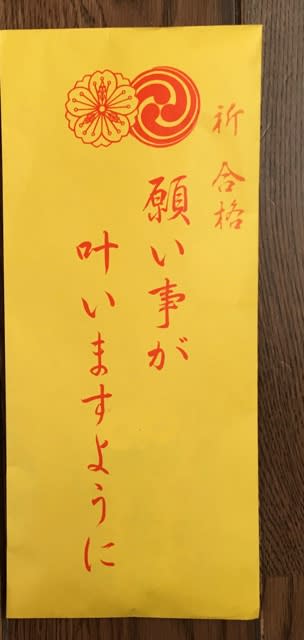 祈 合格
願い事が
叶いますように